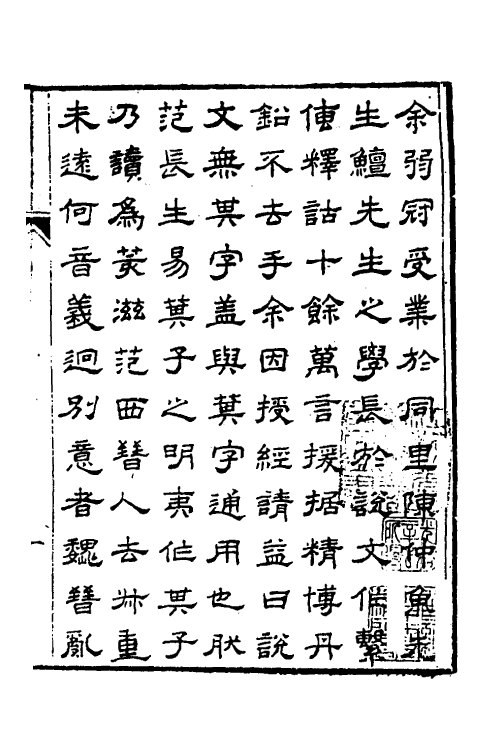 余弱冠受業於同里陳仲魚先
生鱣先生之學長於說文作繫
傳釋詁十餘萬言援據精博丹
鉛不去手余因授經請益曰說
文無其字盖與萁字通用也肰
范長生易萁子之明夷作其子
乃讀為荄滋范西晉人去叔重
未遠何音義迥別意者魏晉亂
一